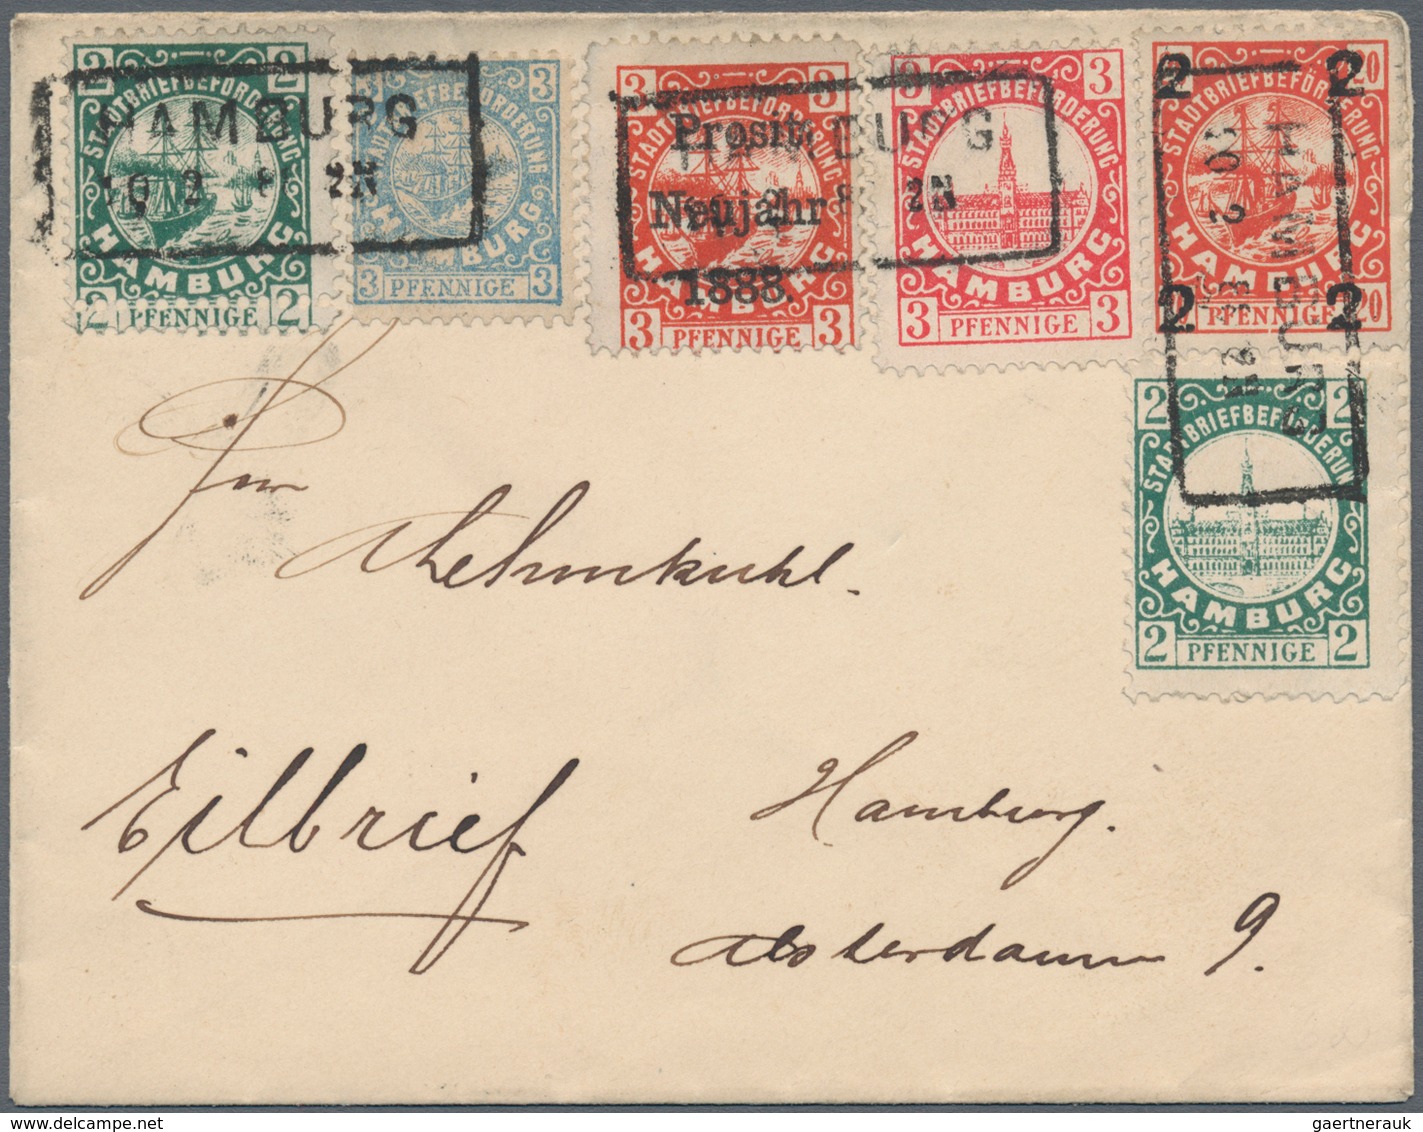 2 2
STADTBRIEFBEFÖRDERUNG
HAMBURG
2 PFENNIGE 2
3
STADTBRIEFBEFÖRDERUNG
HAMBURG
3 PFENNIGE 3
HAMBURG
2N
3 3
STADTBRIEFBEFÖRDERUNG
Prosit
Neujahr
1888.
HAMBURG
3 PFENNIGE 3
3 3
STADTBRIEFBEFÖRDERUNG
HAMBURG
3 PFENNIGE 3
2N
2 2 20
STADTBRIEFBEFÖRDERUNG
HAMBURG
2 2
PFENNIGE 20
HAMBURG
2 2
STADTBRIEFBEFÖRDERUNG
HAMBURG
2 PFENNIGE 2
Herrn
Eilbrief
Hamburg.
Alsterdamm 9.
gaertnerauk